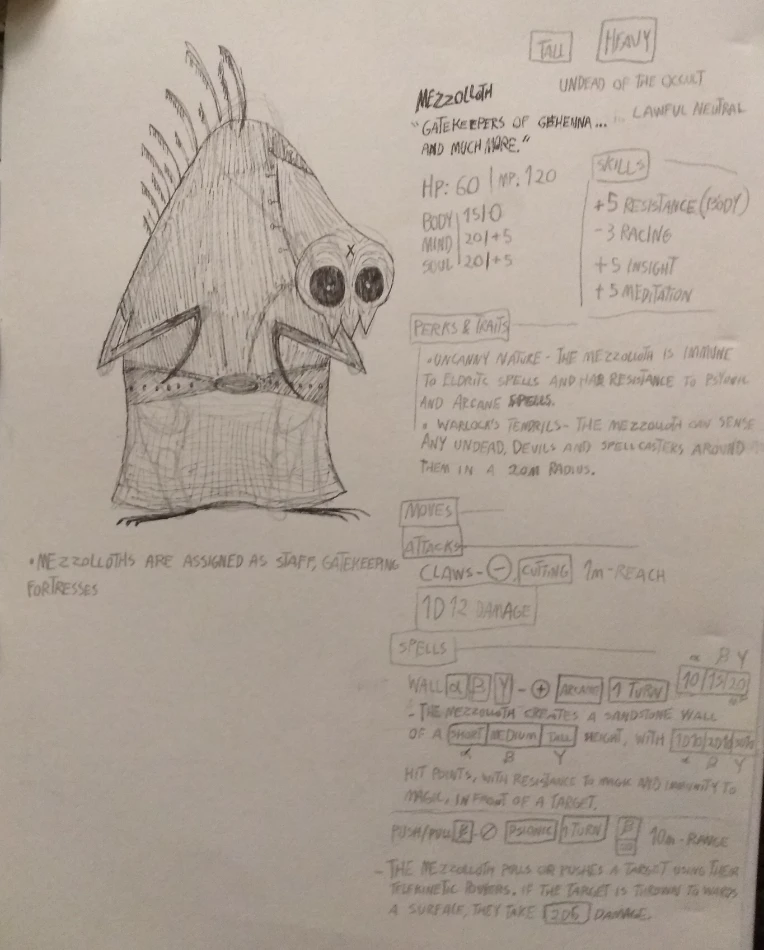 TALL HEAVY
MEZZOLLOTH
UNDEAD OF THE OCCULT
"GATEKEEPERS OF GEHENNA...
LAWFUL NEUTRAL
AND MUCH MORE."
HP: 60 | MP: 120
BODY | 15/0
MIND | 20/+5
SOUL | 20/+5
SKILLS
+5 RESISTANCE (BODY)
-3 RACING
+5 INSIGHT
+5 MEDITATION
PERKS & TRAITS
• UNCANNY NATURE - THE MEZZOLLOTH IS IMMUNE
TO ELDRITC SPELLS AND HAS RESISTANCE TO PSYONIC
AND ARCANE SPELLS.
• WARLOCK'S TENDRILS - THE MEZZOLLOTH CAN SENSE
ANY UNDEAD, DEVILS AND SPELLCASTERS AROUND
THEM IN A 20M RADIUS.
• MEZZOLLOTHS ARE ASSIGNED AS STAFF, GATEKEEPING
FORTRESSES
MOVES
ATTACKS
CLAWS - ⊖, CUTTING 1m-REACH
1D12 DAMAGE
SPELLS
α β γ
WALL α β γ - ⊕ ARCANE 1 TURN 10/15/20
- THE MEZZOLLOTH CREATES A SANDSTONE WALL
OF A SHORT MEDIUM TALL HEIGHT, WITH
α β γ
HIT POINTS, WITH RESISTANCE TO MAGIC AND IMMUNITY TO
MAGIC, IN FRONT OF A TARGET.
PUSH/PULL β - ∅ PSIONIC 1 TURN β 10m-RANGE
- THE MEZZOLLOTH PULLS OR PUSHES A TARGET USING THEIR
TELEKINETIC POWERS. IF THE TARGET IS THROWN TOWARDS
A SURFACE, THEY TAKE 2D6 DAMAGE.